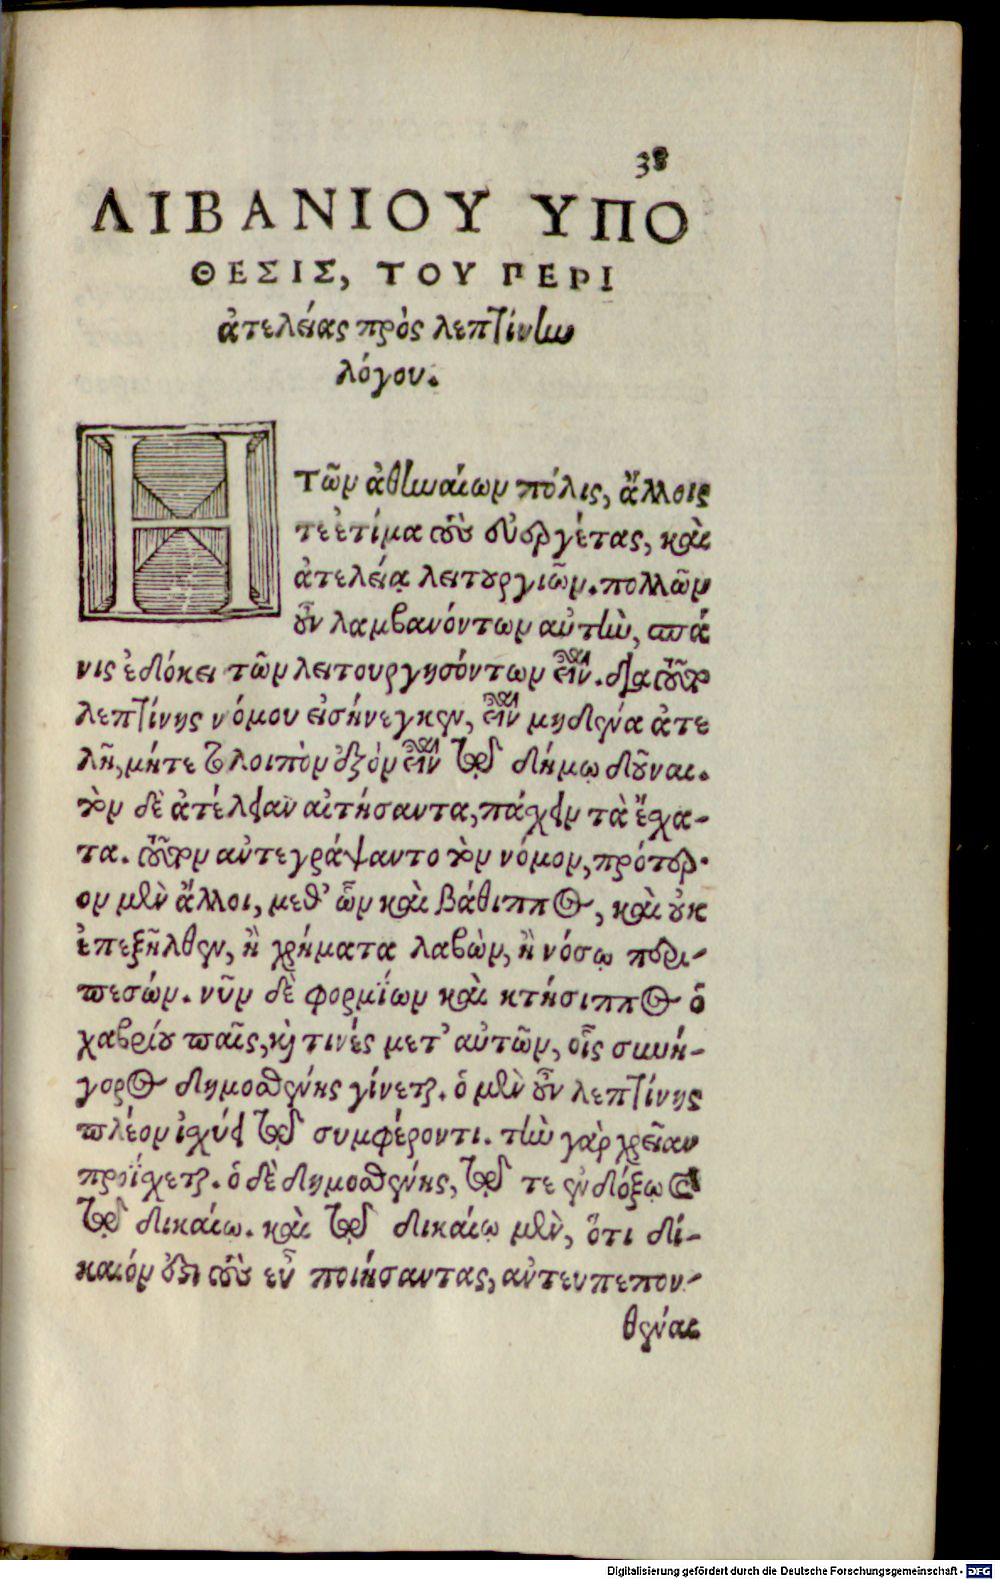 38
ΛΙΒΑΝΙΟΥ ΥΠΟ
ΘΕΣΙΣ, ΤΟΥ ΠΕΡΙ
ἀτελείας πρὸς λεπτίνην
λόγου.
Η
τῶν ἀθηναίων πόλις, ἄλλοις
τε ἐτίμα τοὺς εὐεργέτας, καὶ
ἀτελείᾳ λειτουργιῶν. πολλῶν
οὖν λαμβανόντων αὐτὴν, σπά
νις ἐδόκει τῶν λειτουργησόντων εἶναι. διατοῦτο
λεπτίνης νόμον εἰσήνεγκεν, εἶναι μηδένα ἀτε
λῆ, μήτε τολοιπὸν ἐξὸν εἶναι τῷ δήμῳ δοῦναι.
τὸν δὲ ἀτέλειαν αἰτήσαντα, πάσχειν τὰ ἔσχα-
τα. τοῦτον αὐτεγράψαντο τὸν νόμον, πρότερ-
ον μὲν ἄλλοι, μεθ’ ὧν καὶ βάθιππος, καὶ οὐκ
ἐπεξῆλθεν, ἢ χρήματα λαβὼν, ἢ νόσῳ περι-
πεσών. νῦν δὲ φορμίων καὶ κτήσιππος ὁ
χαβρίου παῖς, καὶ τινές μετ’ αὐτῶν, οἷς συνή-
γορος δημοσθένης γίνεται. ὁ μὲν οὖν λεπτίνης
πλέον ἰσχύει τῷ συμφέροντι. τὴν γὰρ χρεῖαν
προΐσχεται. ὁ δὲ δημοσθένης, τῷ τε ἐνδόξῳ καὶ
τῷ δικαίῳ. καὶ τῷ δικαίῳ μὲν, ὅτι δί-
καιόν ἐστι τοὺς εὖ ποιήσαντας, αὐτευπεπον-
θέναι
Digitalisierung gefördert durch die Deutsche Forschungsgemeinschaft - DFG